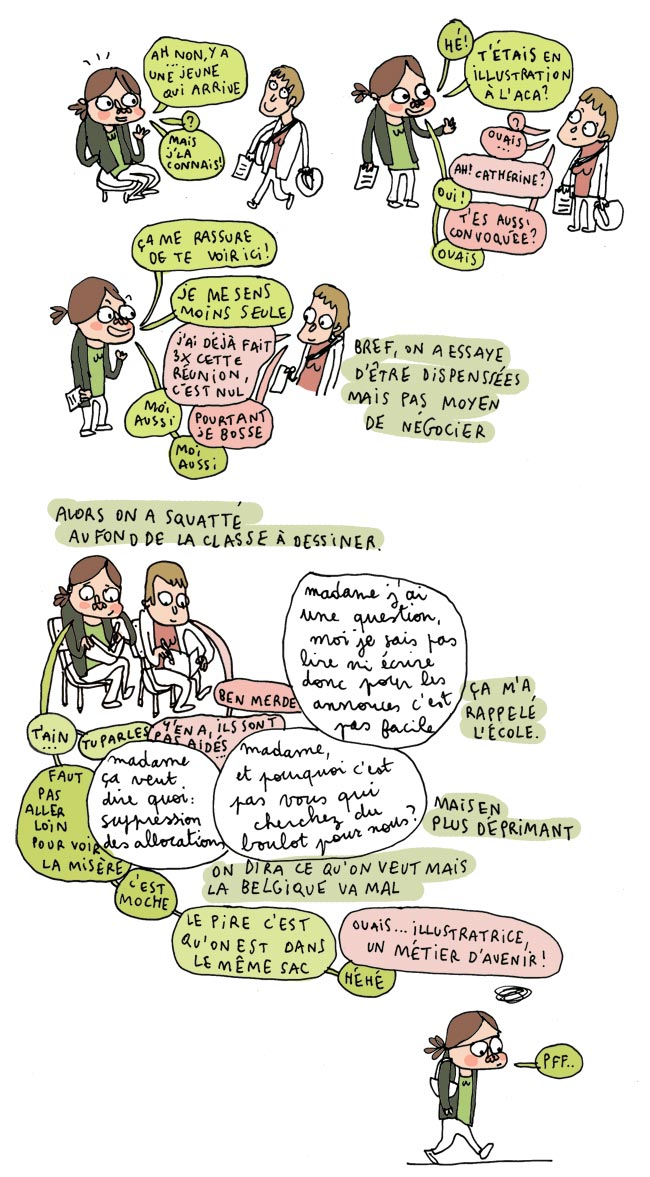 AH NON, Y A
UNE JEUNE
QUI ARRIVE
?
MAIS
J'LA
CONNAIS!
HÉ!
T'ÉTAIS EN
ILLUSTRATION
À L'ACA?
?
OUAIS
...
AH! CATHERINE?
OUI!
T'ES AUSSI
CONVOQUÉE?
OUAIS
ÇA ME RASSURE
DE TE VOIR ICI!
JE ME SENS
MOINS SEULE
J'AI DÉJÀ FAIT
3X CETTE
RÉUNION,
C'EST NUL
MOI
AUSSI
POURTANT
JE BOSSE
MOI
AUSSI
BREF, ON A ESSAYÉ
D'ÊTRE DISPENSÉES
MAIS PAS MOYEN
DE NÉGOCIER
ALORS ON A SQUATTÉ
AU FOND DE LA CLASSE À DESSINER.
madame j'ai
une question,
moi je sais pas
lire ni écrire
donc pour les
annonces c'est
pas facile
ÇA M'A
RAPPELÉ
L'ÉCOLE.
BEN MERDE
T'AIN
...
TU PARLES
Y'EN A, ILS SONT
PAS AIDÉS
madame
ça veut
dire quoi:
suppression
des allocations
madame,
et pourquoi c'est
pas vous qui
cherchez du
boulot pour nous?
MAIS EN
PLUS DÉPRIMANT
FAUT
PAS
ALLER
LOIN
POUR VOIR
LA MISÈRE
ON DIRA CE QU'ON VEUT MAIS
LA BELGIQUE VA MAL
C'EST
MOCHE
LE PIRE C'EST
QU'ON EST DANS
LE MÊME SAC
OUAIS... ILLUSTRATRICE,
UN MÉTIER D'AVENIR!
HÉHÉ
PFF..